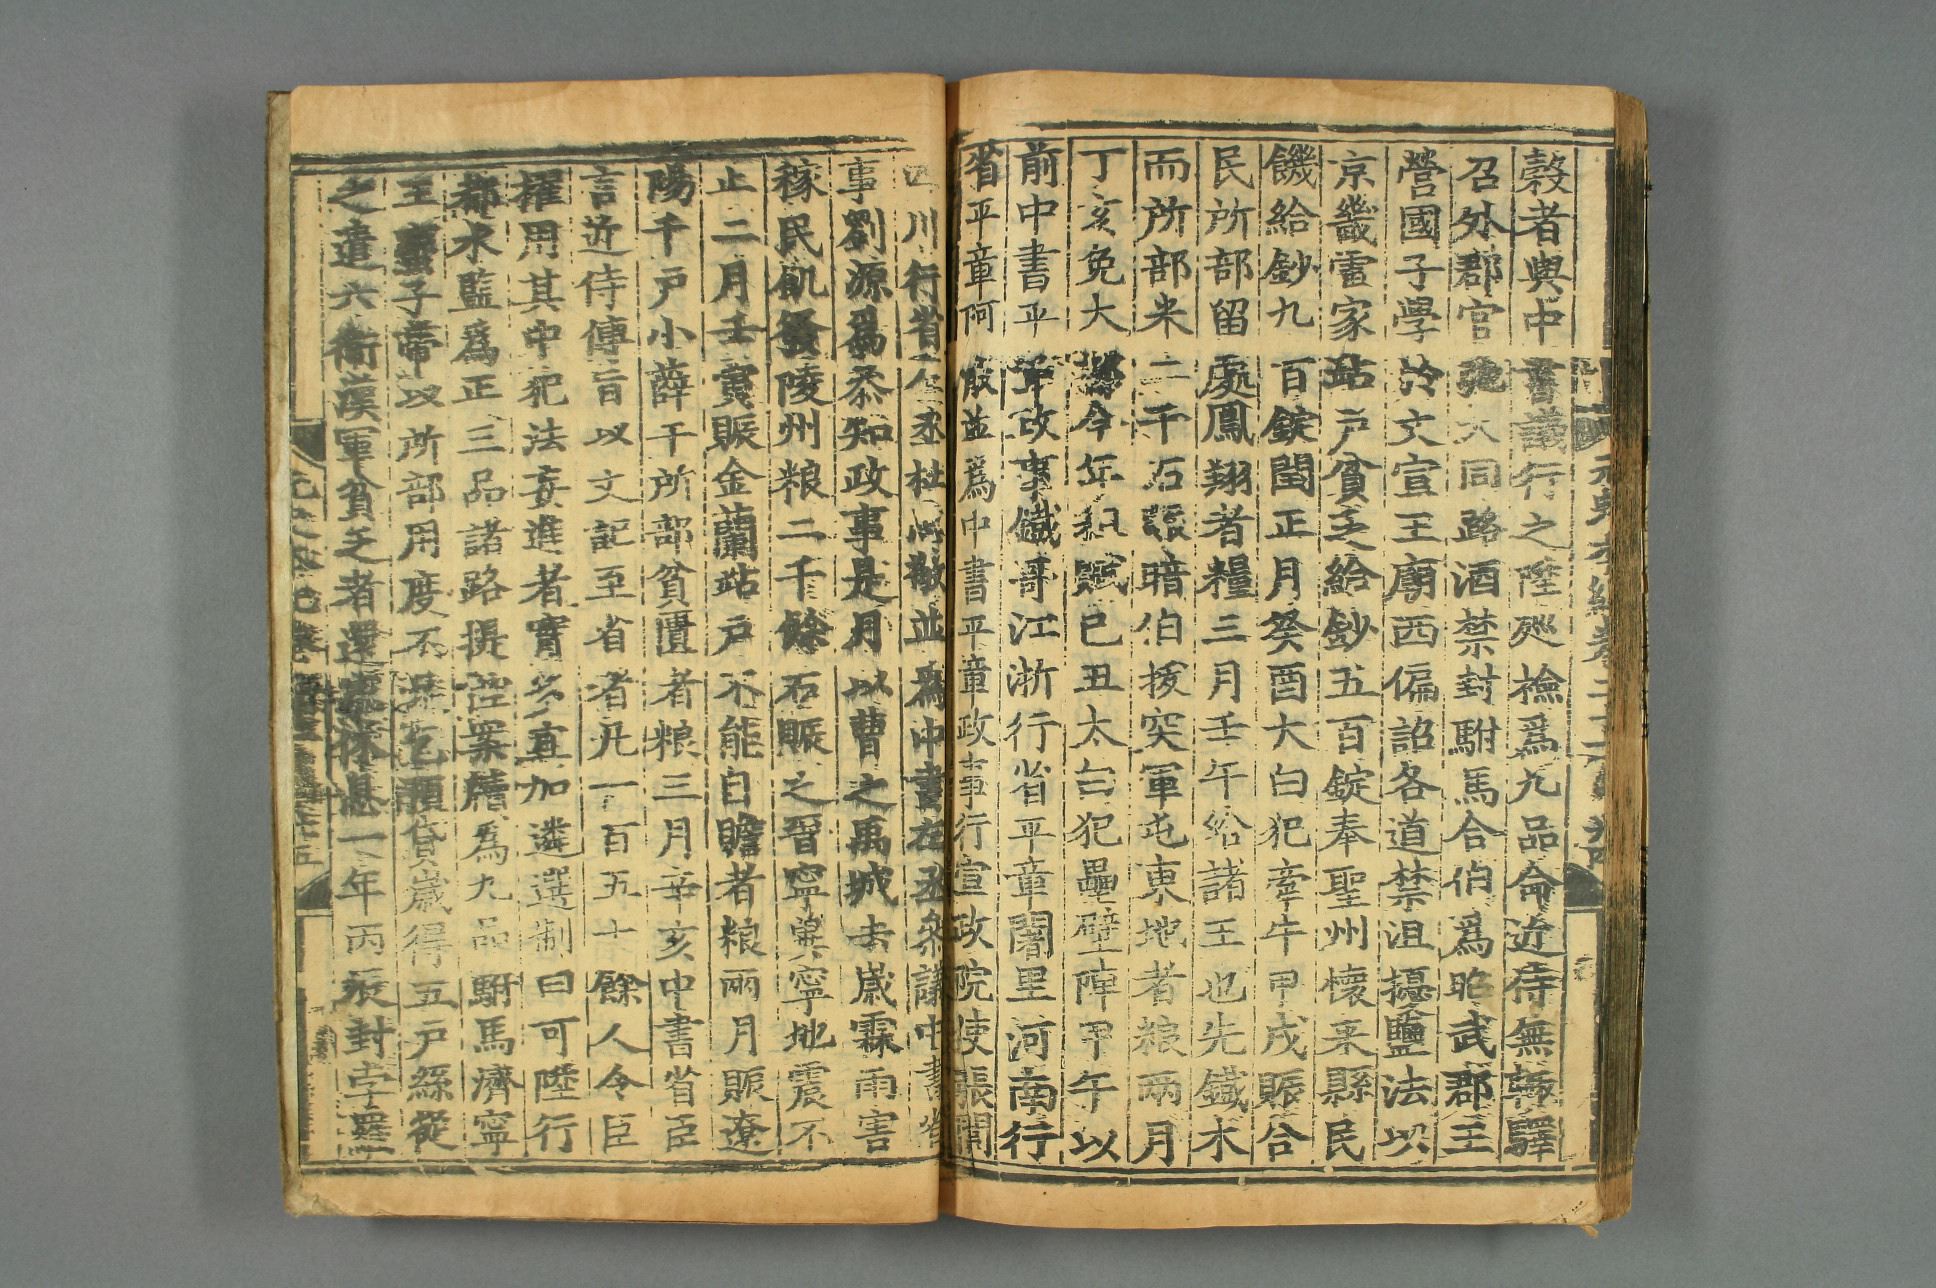 穀者與中書議行之陞廵檢爲九品命近侍無輙驛
召外郡官弛大同路酒禁封駙馬合伯爲昭武郡王
營國子學於文宣王廟西偏詔各道禁沮擾鹽法以
京畿雷家站戶貧乏給鈔五百錠奉聖州懷来縣民
饑給鈔九百錠閏正月癸酉大白犯牽牛甲戌賑合
民所部留處鳳翔者糧三月壬午給諸王也先鐵木
而所部米二千石賑暗伯拔突軍屯東地者粮兩月
丁亥免大都今年租賦己丑太白犯壘壁陣甲午以
前中書平章政事鐵哥江浙行省平章闍里河南行
省平章阿散並爲中書平章政事行宣政院使張閭
四川行省左丞杜思敬並爲中書左丞叅議中書省
事劉源爲叅知政事是月以曹之禹城去歲霖雨害
稼民飢發陵州粮二千餘石賑之晉寧冀寧地震不
止二月壬寅賑金蘭站戶不能自贍者粮兩月賑遼
陽千戶小薛干所部貧匱者粮三月辛亥中書省臣
言近侍傳旨以文記至省者凢一百五十餘人令臣
擢用其中犯法妄進者實多宜加遴選制曰可陞行
都水監爲正三品諸路提控案牘爲九品駙馬濟寧
王蠻子帶以所部用度不足乞預貸歲得五戶絲從
之遣六衛漢軍貧乏者還家休息一年丙辰封孛羅